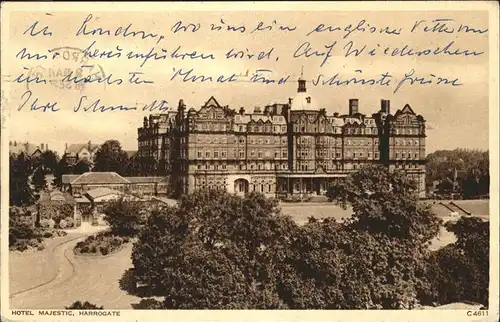 in London, wo uns ein englischer Vetter
nur herumführen wird. Auf Wiedersehen
im nächsten Monat und schönste Grüsse
Ihre Schmidts
HOTEL MAJESTIC, HARROGATE
C4611